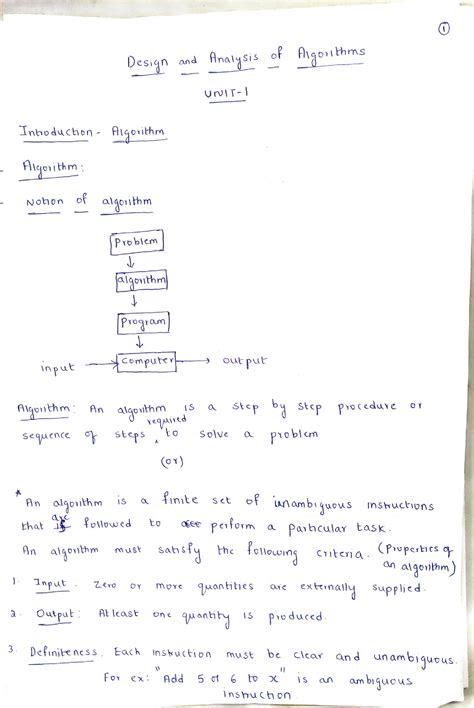 1
Design and Analysis of Algorithms
UNIT-1
Introduction - Algorithm
Algorithm:
Notion of algorithm
Problem
algorithm
Program
input → computer → output
Algorithm: An algorithm is a step by step procedure or
sequence of steps required to solve a problem
(or)
* An algorithm is a finite set of unambiguous instructions
that are followed to perform a particular task.
An algorithm must satisfy the following criteria. (Properties of
an algorithm)
1. Input. Zero or more quantities are externally supplied.
2. Output: Atleast one quantity is produced.
3. Definiteness. Each instruction must be clear and unambiguous.
For ex: "Add 5 or 6 to x" is an ambiguous
instruction.